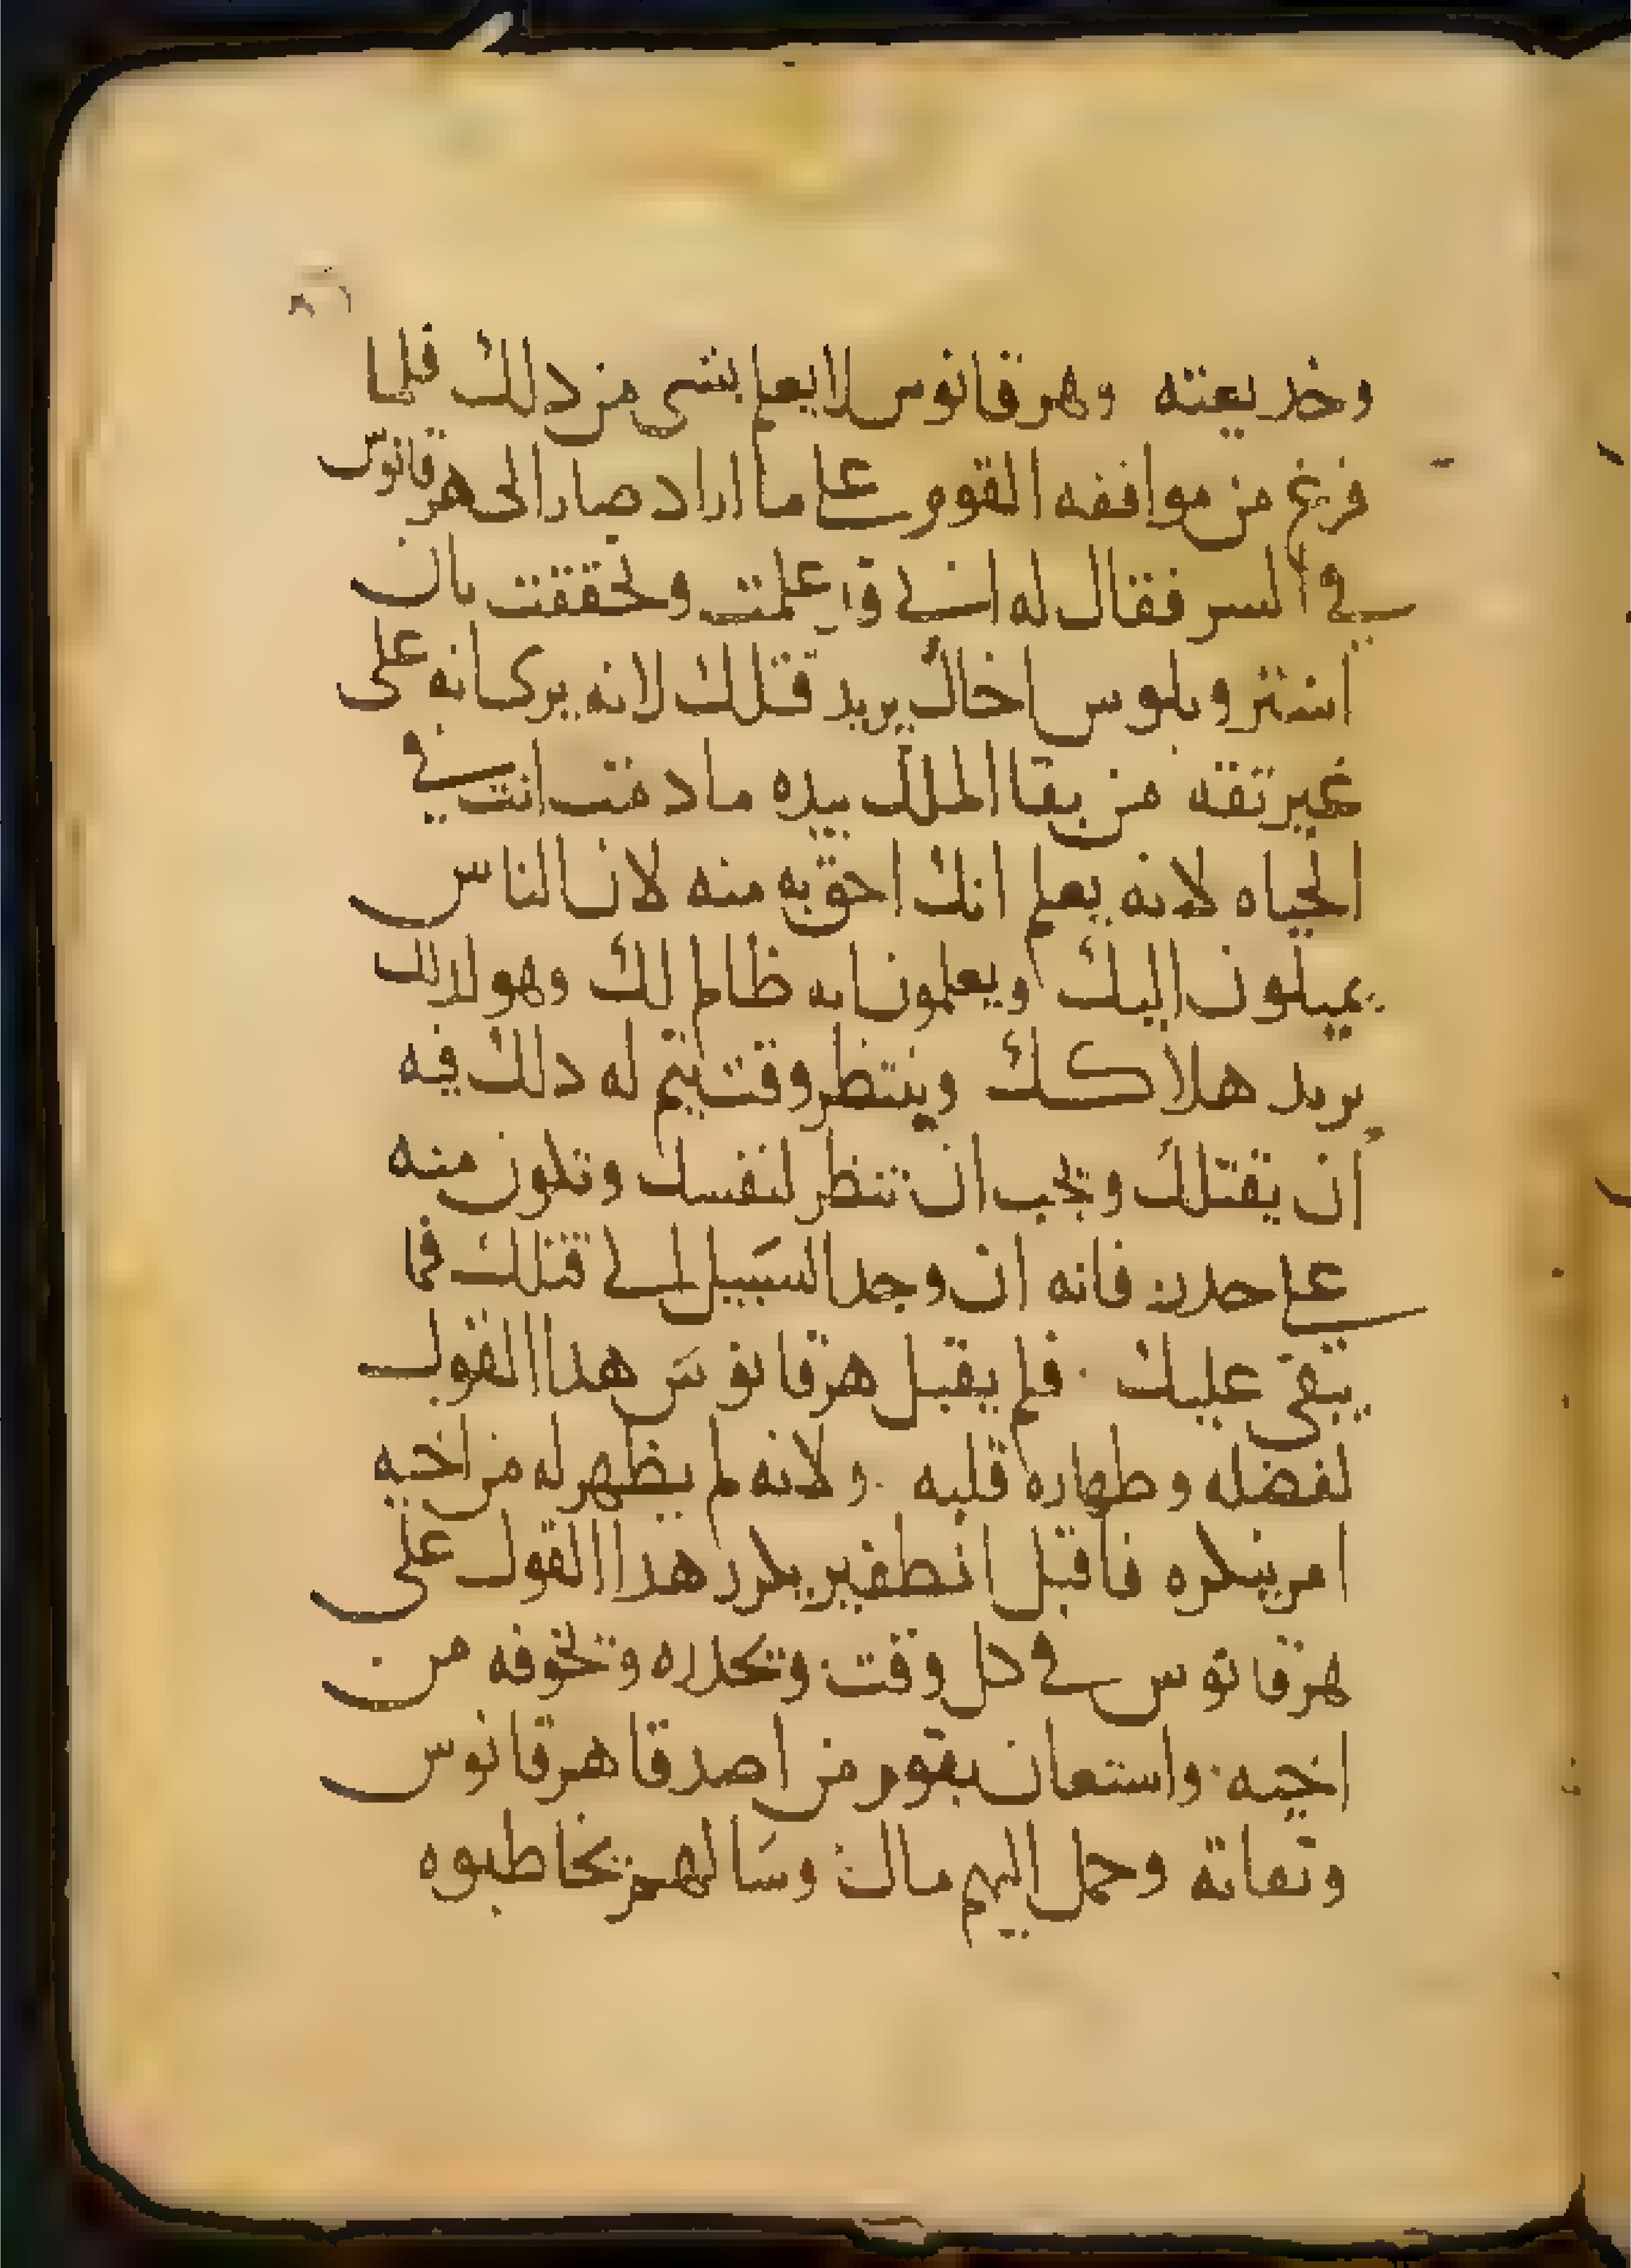 وخديعته وهرقانوس لا يعلم بشي من دلك فلما
فرغ من موافقه القوم على ما اراد صار الى هرقانوس
في السر فقال له انني قد علمت وتحققت بان
استروبلوس اخاك يريد قتلك لانه يرى انه على
غير ثقه من بقا الملك بيده ما دمت انت في
الحياه لانه يعلم انك احق به منه لان الناس
يميلون اليك ويعلمون انه ظالم لك وهو لدلك
يريد هلاكك وينتظر وقت يتم له دلك فيه
ان يقتلك ويجب ان تنظر لنفسك وتكون منه
على حدر فانه ان وجد السبيل الى قتلك فما
يبقي عليك فلم يقبل هرقانوس هدا القول
لفضله وطهاره قلبه ولانه لم يظهر له من اخيه
امر ينكره فاقبل انطفير يكرر هدا القول على
هرقانوس في كل وقت ويخوفه من
اخيه واستعان بقوم من اصدقا هرقانوس
وثقاته وحمل اليهم مالا وسالهم يخاطبوه